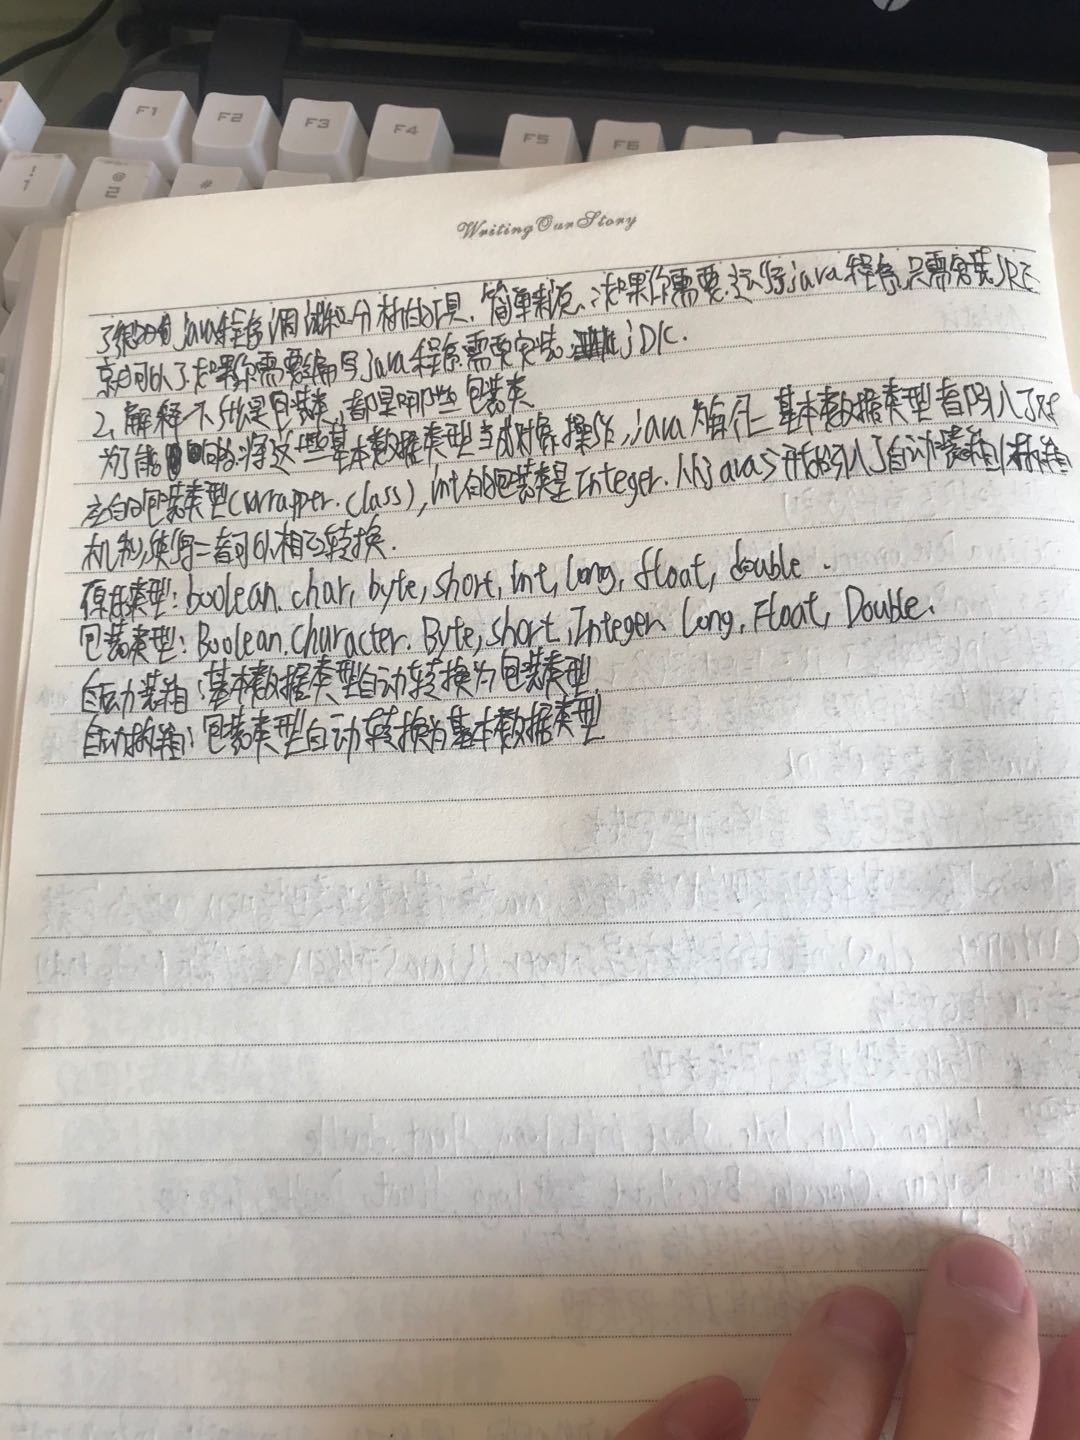 F1 F2 F3 F4 F5 F6
! 1 @ 2 #
WritingOurStory
了很多的java程序调试和分析的工具.简单来说:如果你需要运行java程序,只需安装JRE
就可以了.如果你需要编写java程序需要安装jDK.
2、解释一下什么是包装类,都是哪些包装类
为了能够将这些基本数据类型当成对象操作,java为每一基本数据类型都引入了对
应的包装类型(wrapper.class),int的包装类是Integer.从java5开始引入了自动装箱/拆箱
机制,使得二者可以相互转换.
原始类型:boolean.char,byte,short,int,long,float,double.
包装类型:Boolean.Character.Byte,short,Integer.Long,Float,Double.
自动装箱:基本数据类型自动转换为包装类型
自动拆箱:包装类型自动转换为基本数据类型